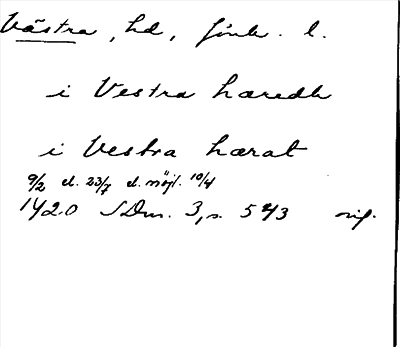 Västra, hd, Jönk. l.
i Vestra hæredh
i Vestra hærat
9/2 el. 23/7 el. möjl. 10/4
1420 SDns. 3, s. 543 orig.